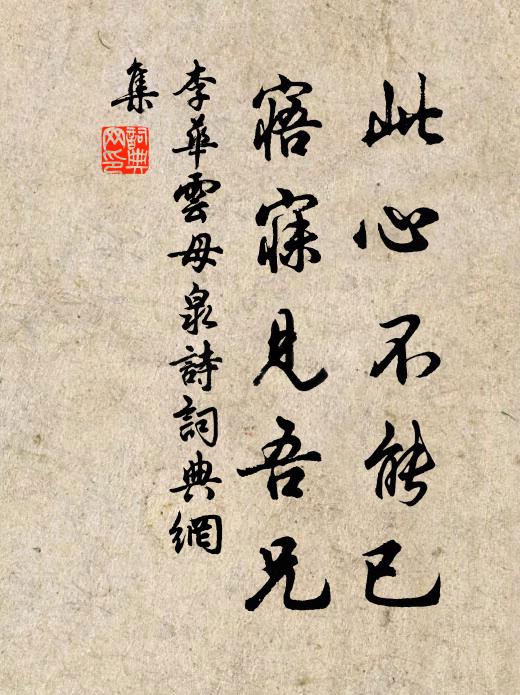 此心不能已
寤寐見吾兄
李華雲母泉詩詞典網
集
詞典
网印